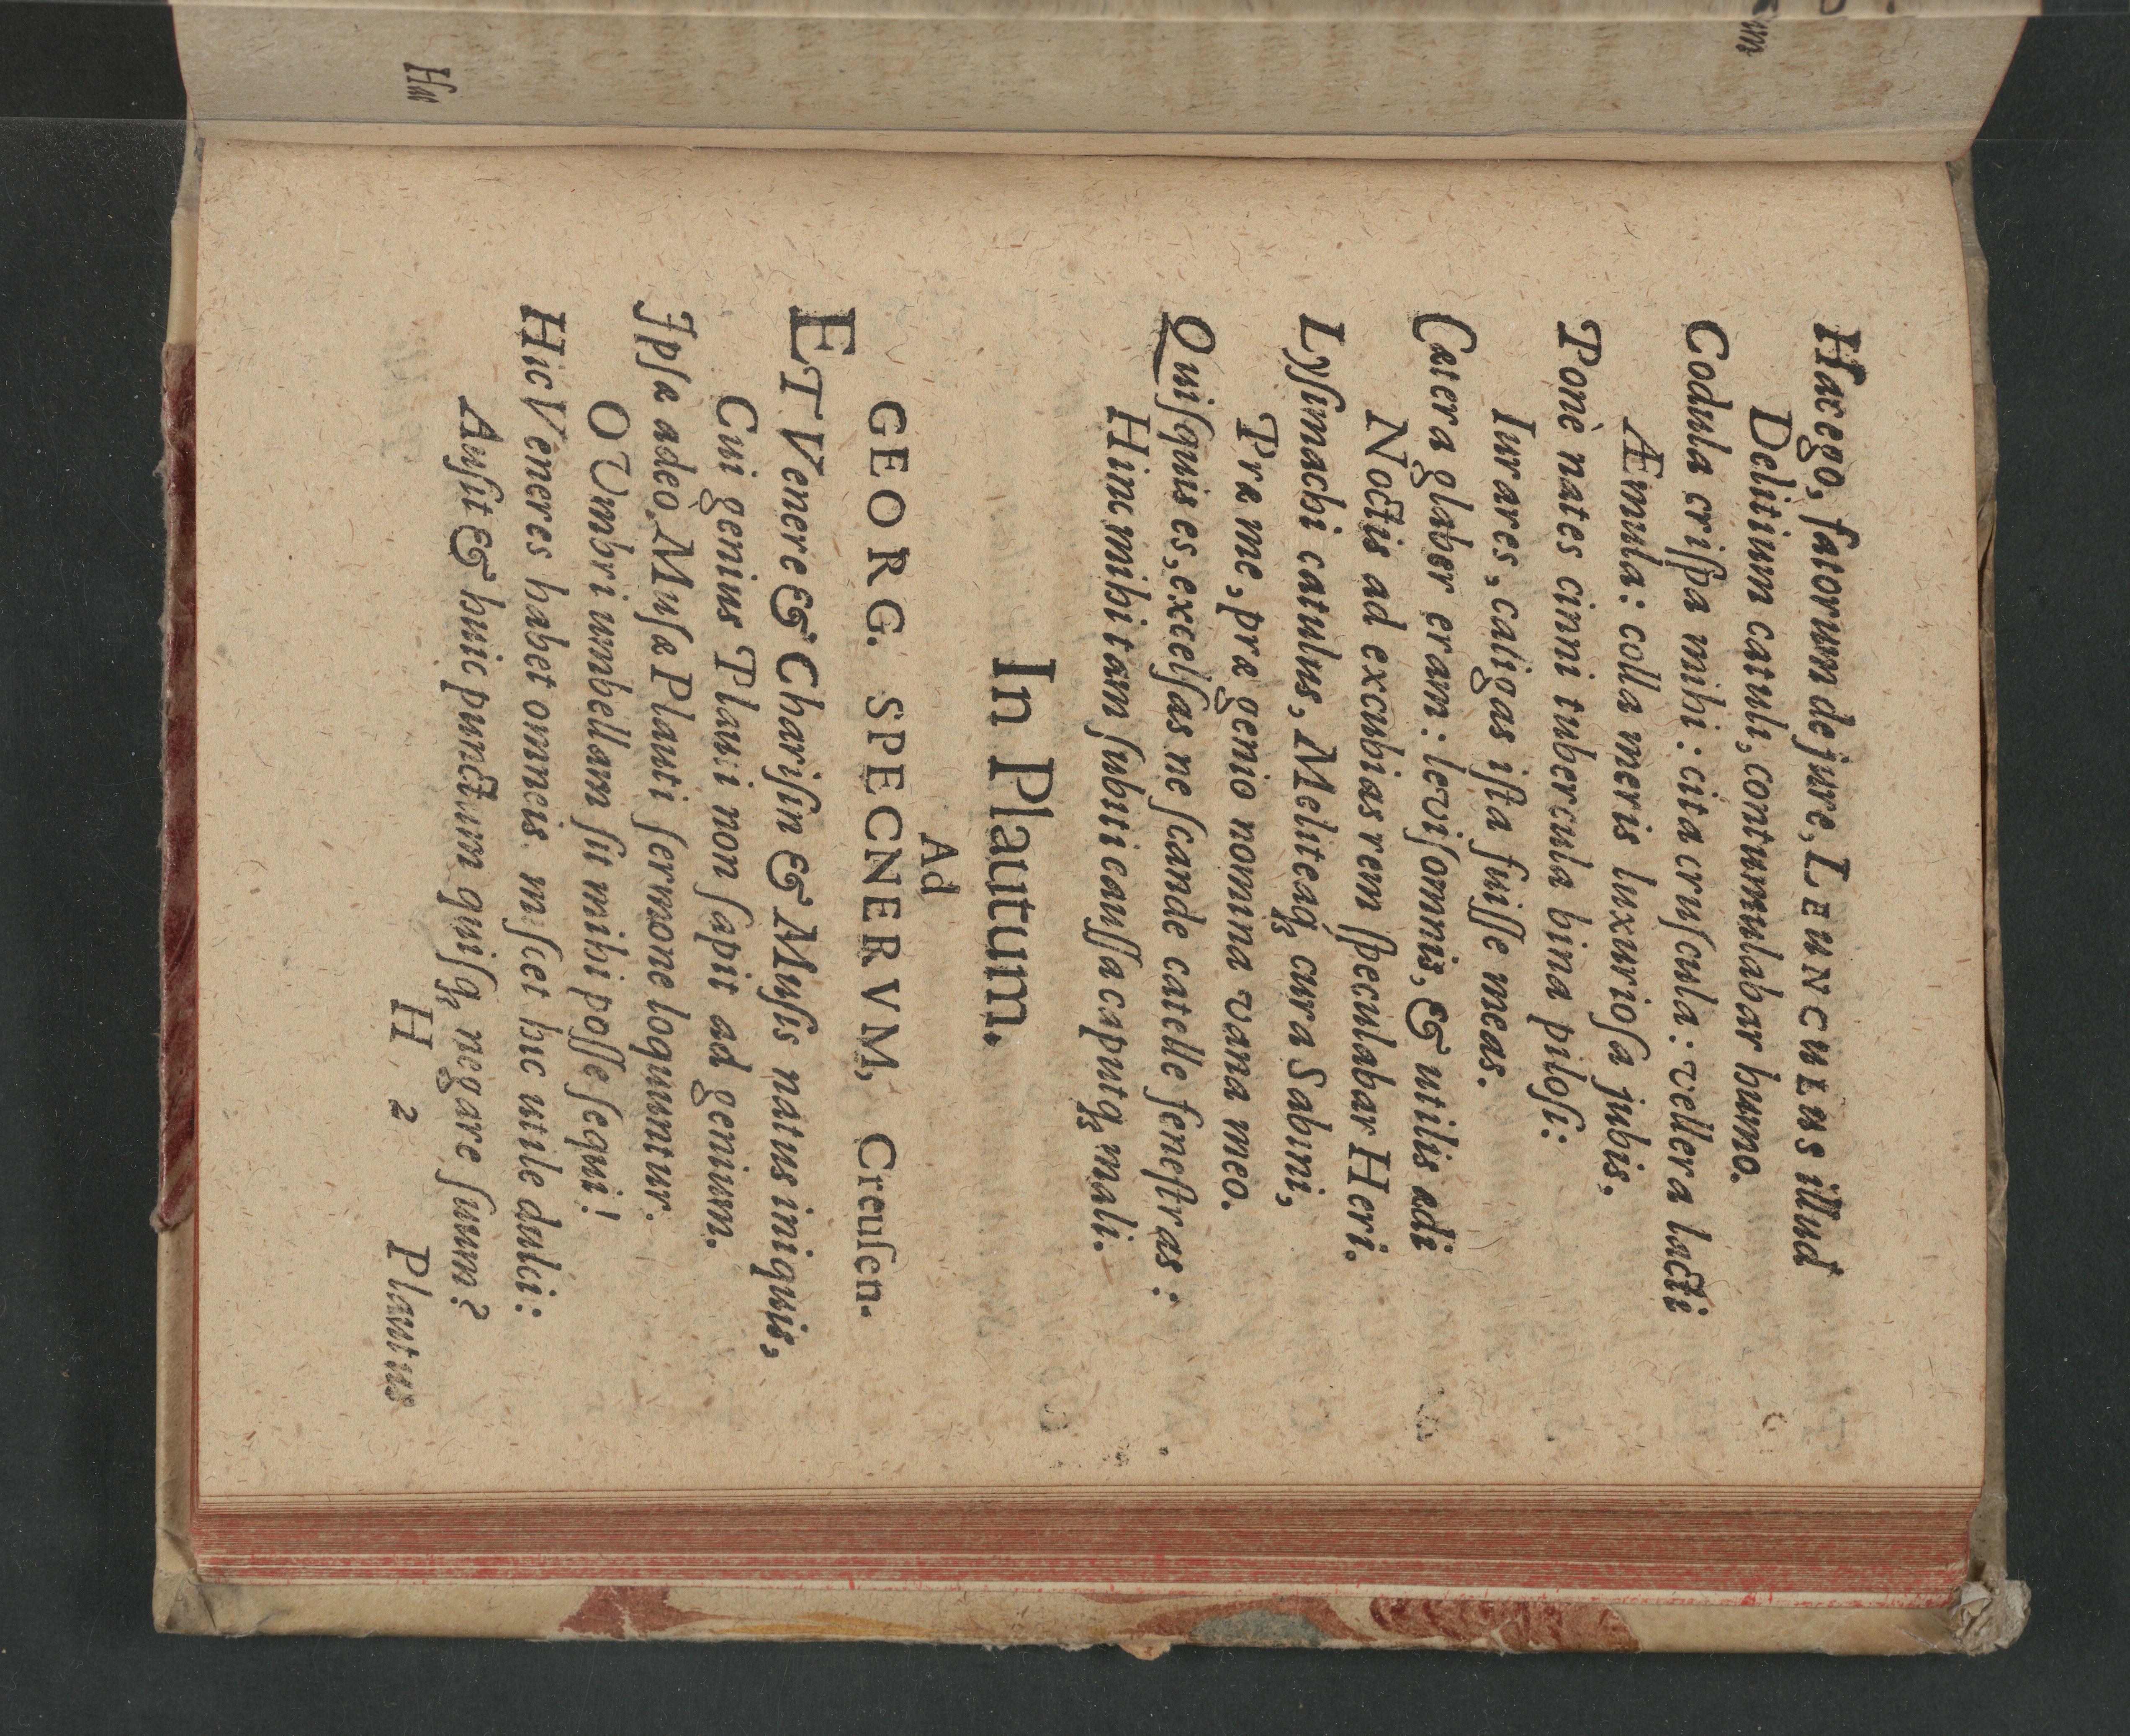 Hæc ego, fatorum de jure, LEUNCULUS illud
Delitium catuli, contumulabar humo.
Codula criſpa mihi: cita cruſcula: vellera lacti
Æmula: colla meris luxurioſa jubis.
Ponè nates cinni tubercula bina piloſi:
Iurares, caligas iſta fuiſſe meas.
Cætera glaber eram: leviſomnis, & utilis ædi
Noctis ad excubias rem ſpeculabar Heri.
Lyſimachi catulus, Meliteaq; cura Sabini,
Præ me, præ genio nomina vana meo.
Quiſquis es, excelſas ne ſcande catelle feneſtras:
Hinc mihi tam ſubiti cauſſa caputq; mali.
In Plautum.
Ad
GEORG. SPECNERVM, Creuſen.
ET Venere & Chariſin & Muſis natus iniquis,
Cui genius Plauti non ſapit ad genium.
Ipſæ adeo Muſæ Plauti ſermone loquuntur.
O Umbri umbellam ſit mihi poſſe ſequi!
Hic Veneres habet omneis. mſcet hic utile dulci:
Auſit & huic punctum quiſq; negare ſuum?
H 2
Plautus